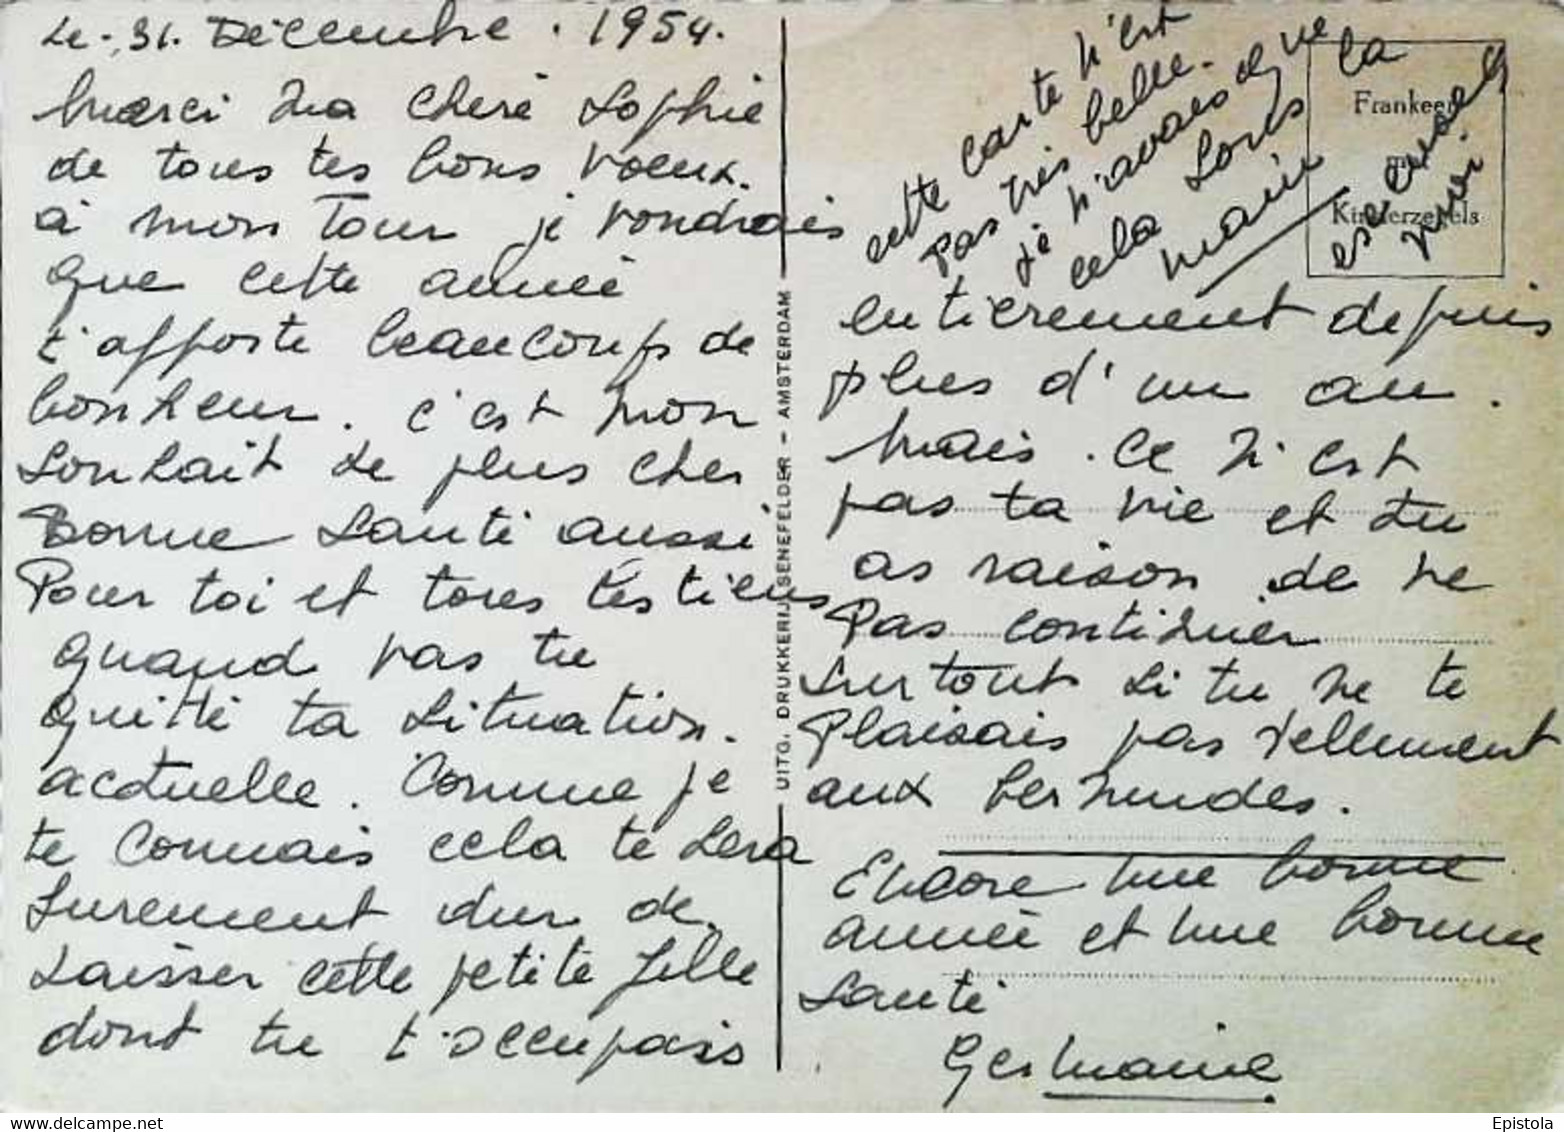 Le 31. Décembre. 1954.
Merci ma cheré Sophie
de tous tes bons voeux.
à mon Tour je voudrais
que cette année
t'apporte beaucoup de
bonheur. c'est mon
souhait le plus cher
Bonne santé aussi
Pour toi et tous tes tiens
quand vas tu
quitté ta situation.
actuelle. Comme je
te connais cela te sera
surement dur de
laisser cette petite fille
dont tu t'occupais
entierement depuis
plus d'un an.
mais. ce n'est
pas ta vie et tu
as raison de ne
pas continuer
surtout si tu ne te
plaisais pas réellement
aux bermudes.
Encore une bonne
année et une bonne
santé
Germaine
cette carte n'est
pas très belle.
je n'avais que
cela sous la
main
Frankeer
Kinderzegels
UITG. DRUKKERIJ SENEFELDER - AMSTERDAM
Epistola